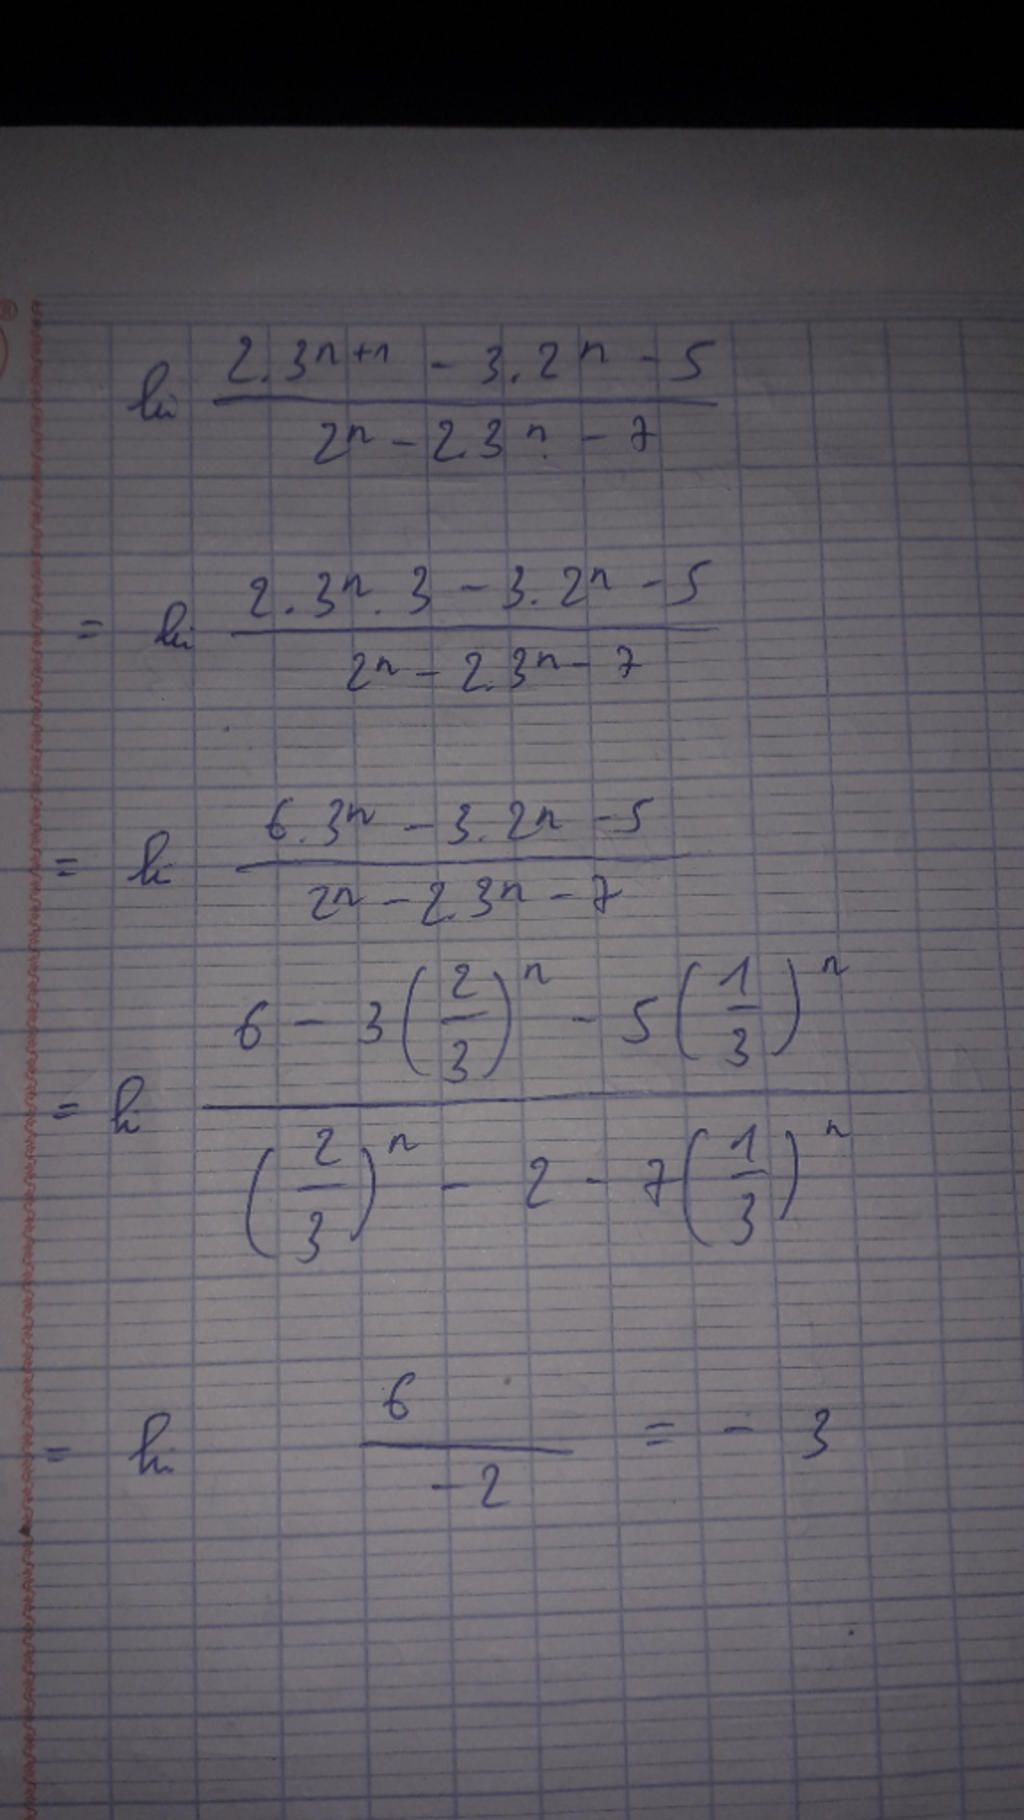 lim (2.3^{n+1} - 3.2^n - 5) / (2^n - 2.3^n - 7)
= lim (2.3^n.3 - 3.2^n - 5) / (2^n - 2.3^n - 7)
= lim (6.3^n - 3.2^n - 5) / (2^n - 2.3^n - 7)
= lim (6 - 3(2/3)^n - 5(1/3)^n) / ((2/3)^n - 2 - 7(1/3)^n)
= lim 6 / -2 = - 3